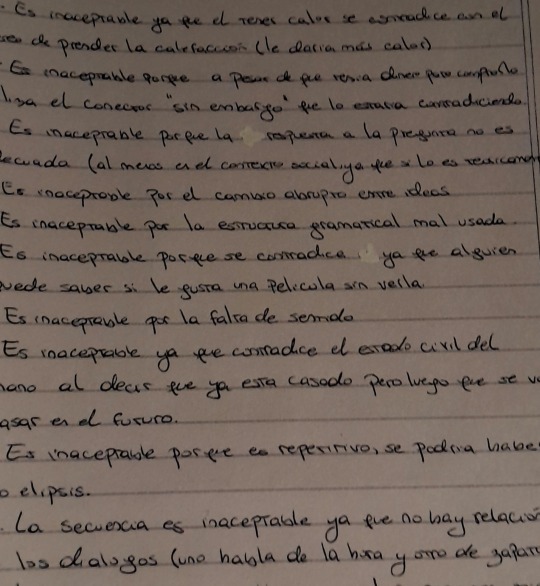 . Es inaceptable ya que el tener calor se contradice con el
de prender la calefacción (le daria más calor)
. Es inaceptable porque a pesar de que tenia dinero para comprarlo
usa el conector "sin embargo" que lo estaria contradiciendo
Es inaceptable porque la respuesta a la pregunta no es
ecuada (al menos en el contexto social, ya que si lo es
Es inaceptable por el cambio abrupto entre ideas
Es inaceptable por la estructura gramatical mal usada.
Es inaceptable porque se contradice ya que alguien
uede saber si le gusta una película sin verla
Es inaceptable por la falta de sentido
Es inaceptable ya que contradice el estado civil del
mano al decir que ya esta casado pero luego que se v
asar en el futuro.
Es inaceptable porque es repetitivo, se podria habe
o elipsis.
. La secuencia es inaceptable ya que no hay relación
los dialogos (uno habla de la hora y otro de zapat